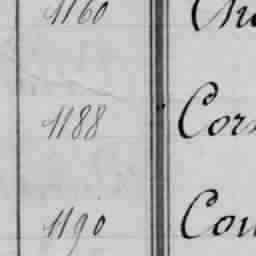 1160 Cha
1188 Corn
1190 Cou